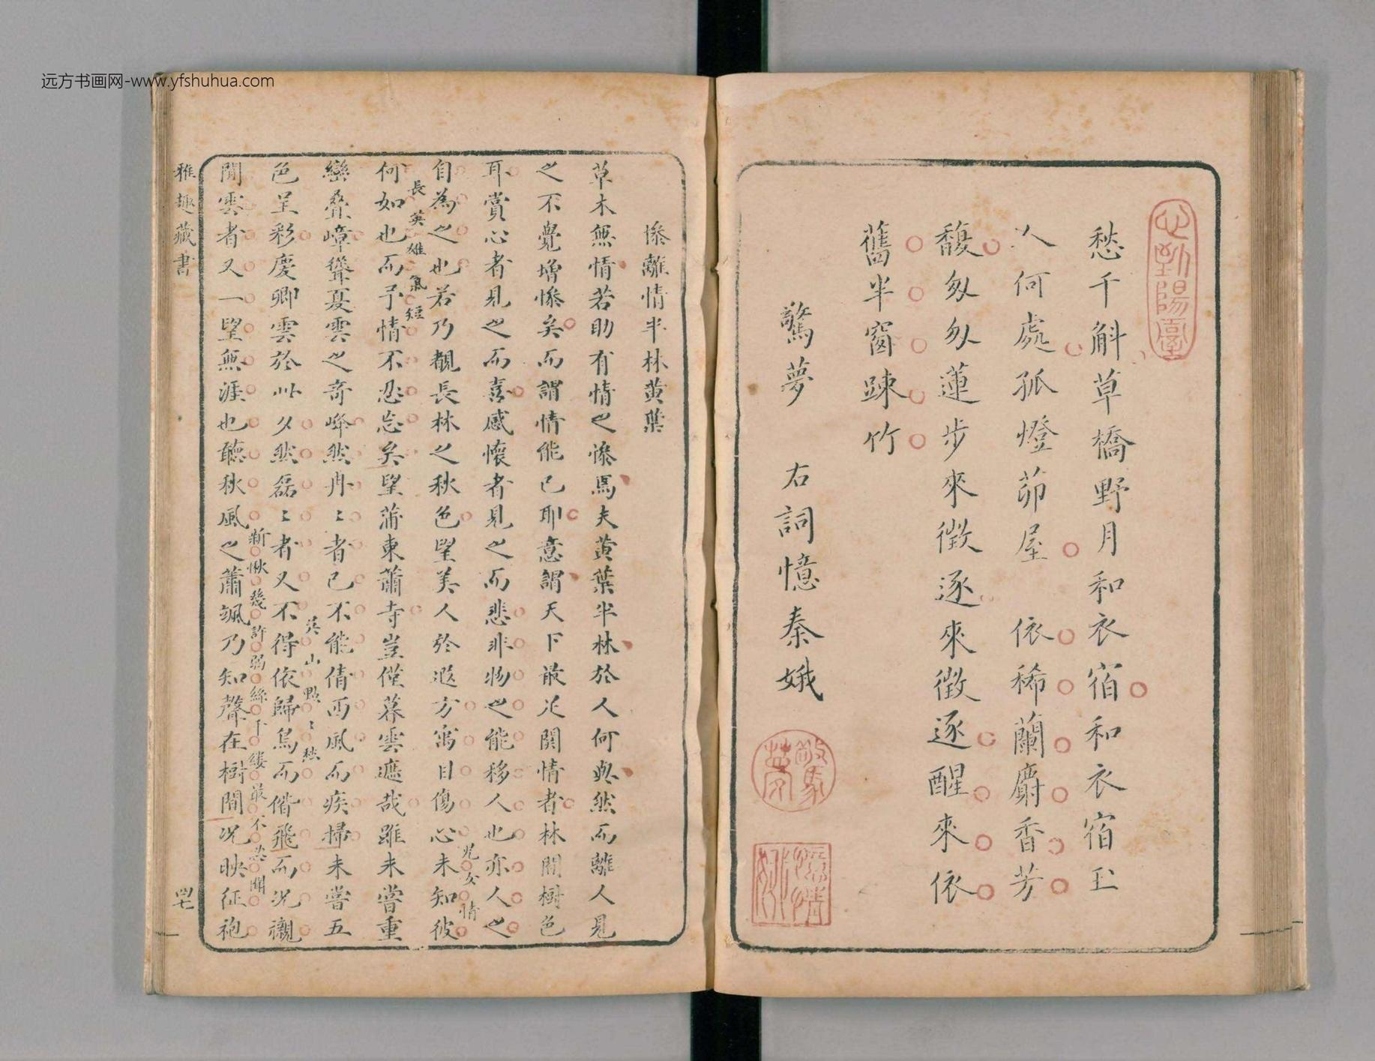 远方书画网-www.yfshuhua.com
愁千斛草橋野月和衣宿和衣宿玉
人何處孤燈茆屋 依稀蘭麝香芳
馥匆匆蓮步來徴逐來徴逐醒來依
舊半窗踈竹
驚夢 右詞憶秦娥
驚夢
慘離情半林黄葉
草木無情若助有情之慘焉夫黄葉半林於人何與然而離人見
之不覺增慘矣而謂情能已耶意謂天下最足関情者林間樹色
耳賞心者見之而喜感懷者見之而悲非物之能移人也亦人之
自為之也若乃觀長林之秋色望美人於遐方寓目傷心未知彼
兒女情
長英雄氣短
何如也而予情不忍忘矣望蒲東蕭寺豈僅暮雲遮哉雖未嘗重
巒疊嶂聳夏雲之奇峰然冉〻者已不能倩西風而疾掃未嘗五
色呈彩慶卿雲於此夕然磊〻者又不得依歸鳥而偕飛而况襯
山點〻愁
閒雲者又一望無涯也聽秋風之蕭颯乃知聲在樹間况映征袍
新愁幾許弱絲千縷最不忍聞
雅趣藏書
四七